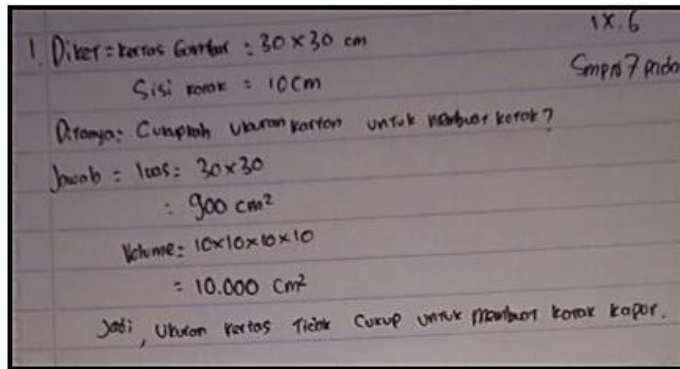 IX.6
1. Diket = kertas Gambar : 30 x 30 cm
Smpn 7
Sisi kotak = 10 cm
Ditanya: Cukupkah ukuran karton untuk membuat kotak?
Jawab = luas = 30x30
: 900 cm²
Volume = 10x10x10x10
= 10.000 cm²
Jadi, Ukuran kertas Tidak Cukup untuk membuat kotak kapur.